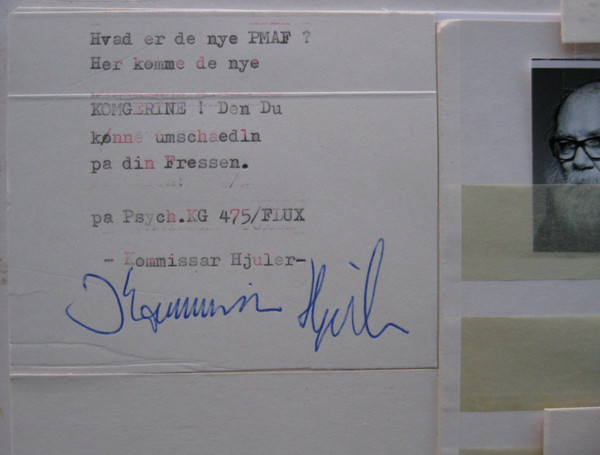 Hvad er de nye PMAF ?
Her komme de nye
KOMGERINE ! Den Du
kønne umschaedln
pa din Fressen.
pa Psych.KG 475/FLUX
- Kommissar Hjuler-
Kommissar Hjuler